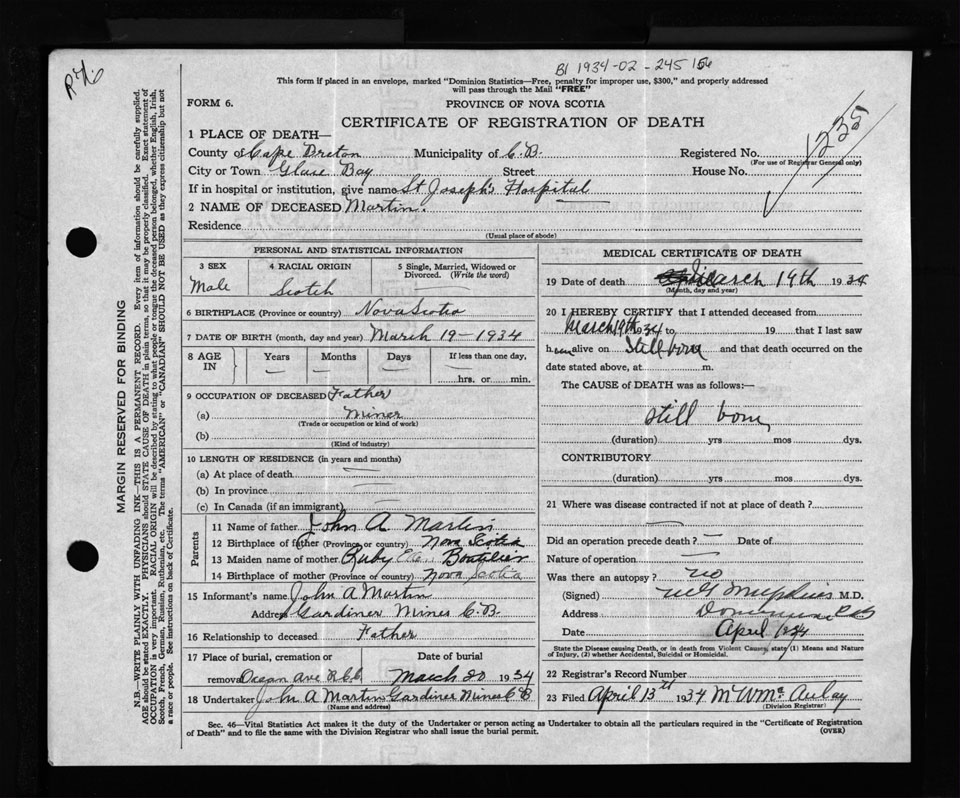 B1 1934-02-245156
This form if placed in an envelope, marked "Dominion Statistics—Free, penalty for improper use, $300," and properly addressed
will pass through the Mail "FREE"
FORM 6.
PROVINCE OF NOVA SCOTIA
CERTIFICATE OF REGISTRATION OF DEATH
1225
1 PLACE OF DEATH—
County of Cape Breton Municipality of C.B. Registered No.
(For use of Registrar General only)
City or Town Glace Bay Street House No.
If in hospital or institution, give name St Joseph's Hospital
2 NAME OF DECEASED Martin.
Residence
(Usual place of abode)
PERSONAL AND STATISTICAL INFORMATION
3 SEX 4 RACIAL ORIGIN 5 Single, Married, Widowed or Divorced. (Write the word)
Male Scotch
6 BIRTHPLACE (Province or country) Nova Scotia
7 DATE OF BIRTH (month, day and year) March 19-1934
8 AGE IN Years Months Days If less than one day,
hrs. or min.
9 OCCUPATION OF DECEASED Father
(a) Miner
(Trade or occupation or kind of work)
(b)
(Kind of industry)
10 LENGTH OF RESIDENCE (in years and months)
(a) At place of death
(b) In province
(c) In Canada (if an immigrant)
Parents
11 Name of father John A Martin
12 Birthplace of father (Province or country) Nova Scotia
13 Maiden name of mother Ruby Boutilier
14 Birthplace of mother (Province of country) Nova Scotia
15 Informant's name John A Martin
Address Gardiner Mines C.B.
16 Relationship to deceased Father
17 Place of burial, cremation or Date of burial
removal Ave March 20 1934
18 Undertaker John A Martin Gardiner Mines C B
(Name and address)
MEDICAL CERTIFICATE OF DEATH
19 Date of death March 19th 1934
(Month, day and year)
20 I HEREBY CERTIFY that I attended deceased from
March 19th 1934 to 19 that I last saw
h alive on Stillborn and that death occurred on the
date stated above, at m.
The CAUSE OF DEATH was as follows:—
still born
(duration) yrs mos dys.
CONTRIBUTORY
(duration) yrs mos dys.
21 Where was disease contracted if not at place of death?
Did an operation precede death? — Date of
Nature of operation —
Was there an autopsy? no
(Signed) M.D.
Address Dominion C B
Date April 1934
State the Disease causing Death, or in death from Violent Causes, state (1) Means and
Nature of Injury, (2) whether Accidental, Suicidal or Homicidal.
22 Registrar's Record Number
23 Filed April 13th 1934 McAulay
(Division Registrar)
Sec. 46—Vital Statistics Act makes it the duty of the Undertaker or person acting as Undertaker to obtain all the particulars required in the "Certificate of Registration
of Death" and to file the same with the Division Registrar who shall issue the burial permit.
(OVER)
MARGIN RESERVED FOR BINDING
N.B.—WRITE PLAINLY WITH UNFADING INK—THIS IS A PERMANENT RECORD. Every item of information should be carefully supplied.
AGE should be stated EXACTLY. PHYSICIANS should STATE CAUSE OF DEATH in plain terms, so that it may be properly classified. Exact statement of
OCCUPATION is very important. RACIAL ORIGIN will be described by stating to what people or tongue the deceased person belonged, whether English, Irish,
Scotch, French, German, Russian, Ruthenian, etc. The terms "AMERICAN" or "CANADIAN" SHOULD NOT BE USED as they express citizenship but not
a race or people. See instructions on back of Certificate.